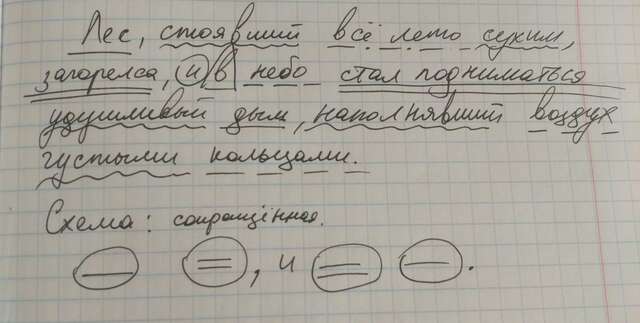 Лес, стоявший всё лето сухим,
загорелся, и в небо стал подниматься
удушливый дым, наполнявший воздух
густыми кольцами.
Схема: сокращённая.
, и .